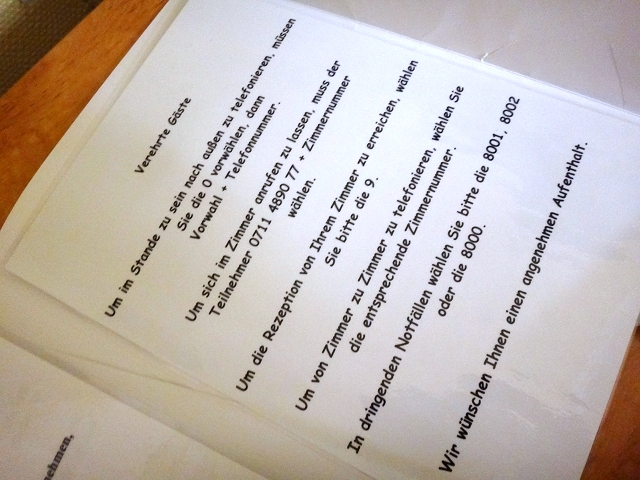 Verehrte Gäste
Um im Stande zu sein nach außen zu telefonieren, müssen
Sie die 0 vorwählen, dann
Vorwahl + Telefonnummer.
Um sich im Zimmer anrufen zu lassen, muss der
Teilnehmer 0711 4890 77 + Zimmernummer
wählen.
Um die Rezeption von Ihrem Zimmer zu erreichen, wählen
Sie bitte die 9.
Um von Zimmer zu Zimmer zu telefonieren, wählen Sie
die entsprechende Zimmernummer.
In dringenden Notfällen wählen Sie bitte die 8001, 8002
oder die 8000.
Wir wünschen Ihnen einen angenehmen Aufenthalt.